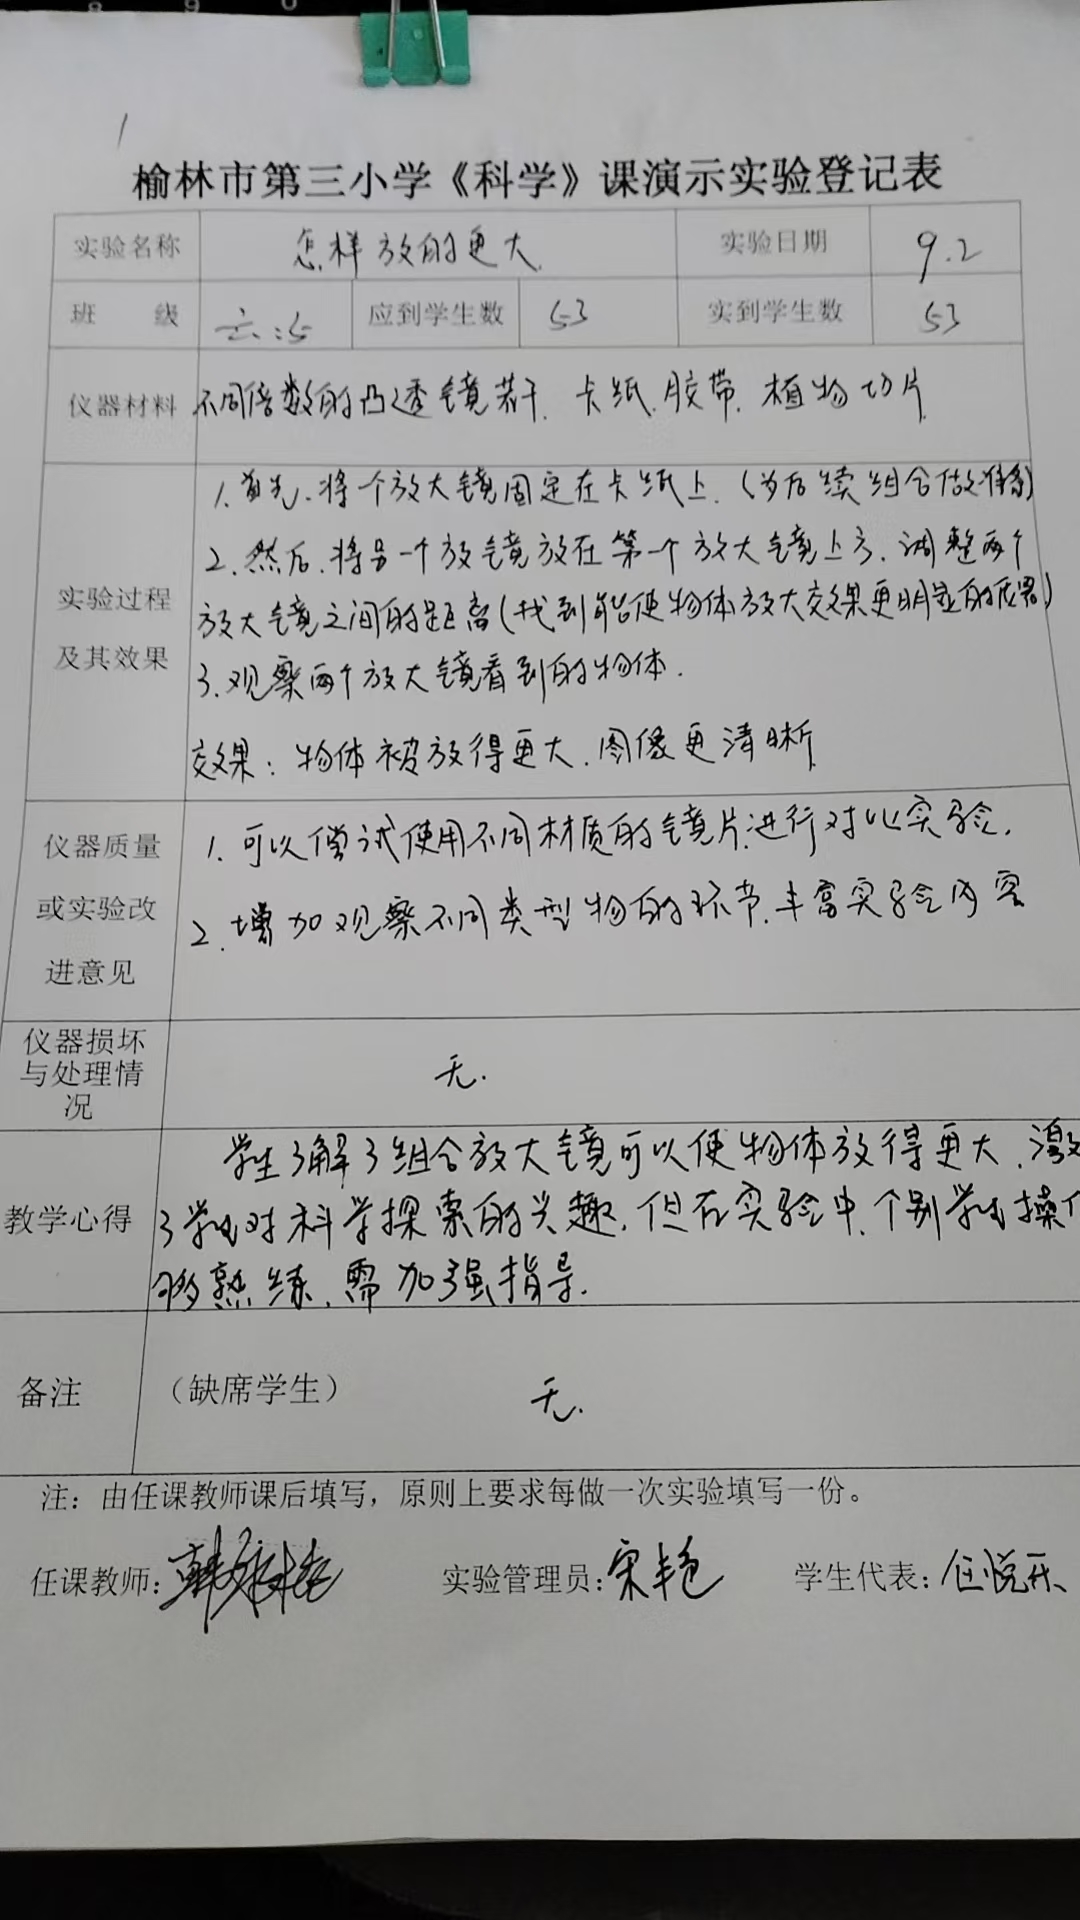 榆林市第三小学《科学》课演示实验登记表
实验名称 怎样放的更大 实验日期 9.2
班 级 六:5 应到学生数 53 实到学生数 53
仪器材料 不同倍数的凸透镜若干、卡纸、胶带、植物切片
1.首先、将个放大镜固定在卡纸上.(为后续组合做准备)
2.然后、将另一个放镜放在第一个放大镜上方、调整两个
实验过程 放大镜之间的距离(找到能使物体放大效果更明显的距离)
及其效果 3.观察两个放大镜看到的物体.
效果:物体被放得更大、图像更清晰
仪器质量 1.可以尝试使用不同材质的镜片进行对比实验.
或实验改 2.增加观察不同类型物的环节、丰富实验内容
进意见
仪器损坏
与处理情 无.
况
学生了解了组合放大镜可以使物体放得更大、激
教学心得 了学生对科学探索的兴趣.但在实验中、个别学生操作
够熟练、需加强指导.
备注 (缺席学生) 无.
注:由任课教师课后填写,原则上要求每做一次实验填写一份。
任课教师: 实验管理员:宋艳 学生代表:任悦乐